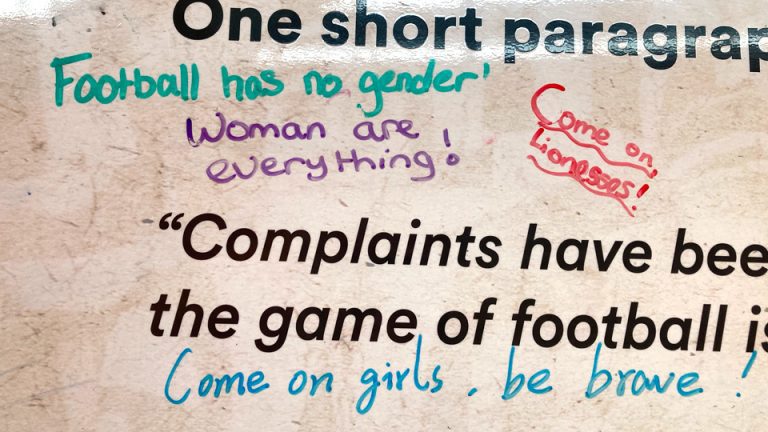 One short paragrap
Football has no gender'
Woman are
everything!
Come on,
Lionesses!
“Complaints have bee
the game of football is
Come on girls, be brave!